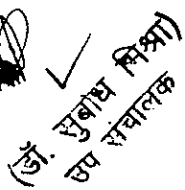 (डॉ. सुबोध मिश्रा)
उप संचालक